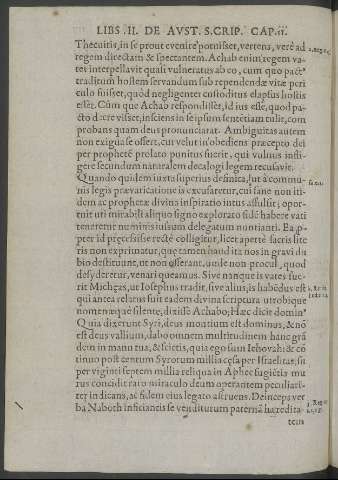 LIBS .II. DE AVST. S. CRIP. CAP. ii.
Thecuitis, in se prout evenire potuisset, vertens, vere ad
regem directam & spectantem. Achab enim regem va-
tes interpellavit quasi vulneratus ab eo, cum quo pact°
traditum hostem servandum sub rependendæ vitæ peri
culo fuisset, quòd negligenter custoditus elapsus hostis
esset. Cùm que Achab respondisset, id ius esse, quod pa-
cto dare visset, insciens in se ipsum sententiam tulit, com
probans quam deus pronunciarat. Ambiguitas autem
non exigua se offert, cur velut inobediens præcepto dei
per prophetã prolato punitus fuerit, qui vulnus infli
gere secundum naturalem decalogi legem recusavit.
Quando quidem iuxta superius definita, ut à commu-
nis legis prævaricatione is excusaretur, cui sane non iti-
dem ac prophetæ divina inspiratio intus affulsit; opor-
tuit uti mirabili aliquo signo explorato fidẽ habere vati
teneretur numinis iussum delegatum nuntianti. Ea p-
pter id præcessisse rectè colligitur, licet apertè sacris lite
ris non exprimatur, quę tamen haud ita nos in gravi du
bio destituunt, ut non asserant, unde non procul, quod
desyderetur, venari queamus. Sive nanque is vates fue-
rit Michęas, ut Iosephus tradit, sive alius, is habẽdus est
qui antea relatus fuit eadem divina scriptura utrobique
nomenæquè silente, dixisse Achabo; Hæc dicit domin°
Quia dixerunt Syri, deus montium est dominus, & nõ
est deus vallium, dabo omnem multitudinem hanc grã
dem in manu tua, & scietis, quia ego sum Iehovah: & cõ
tinuo post centum Syrorum millia cęsa per Israelitas, su
per viginti septem millia reliqua in Aphec fugiẽtis mu
rus concidit raro miraculo deum operantem peculiari-
ter indicans, ac fidem eius legato astruens. Deinceps ver
ba Naboth inficiantis se venditurum paternã hæredita-
tem